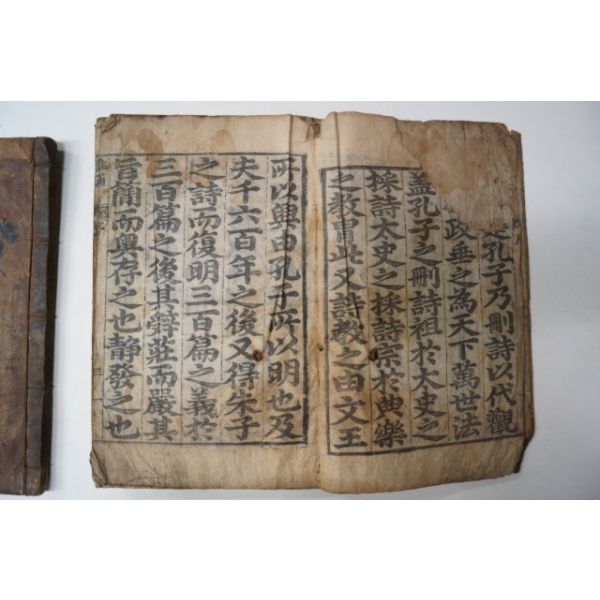 孔子乃刪詩以代觀
政垂之為天下萬世法
盖孔子之刪詩祖於太史之
採詩太史之採詩宗於典樂
之教胄此又詩教之由文王
所以興由孔子所以明也及
夫千六百年之後又得朱子
之詩而復明三百篇之義於
三百篇之後其辭莊而嚴其
旨簡而奧存之也静發之也